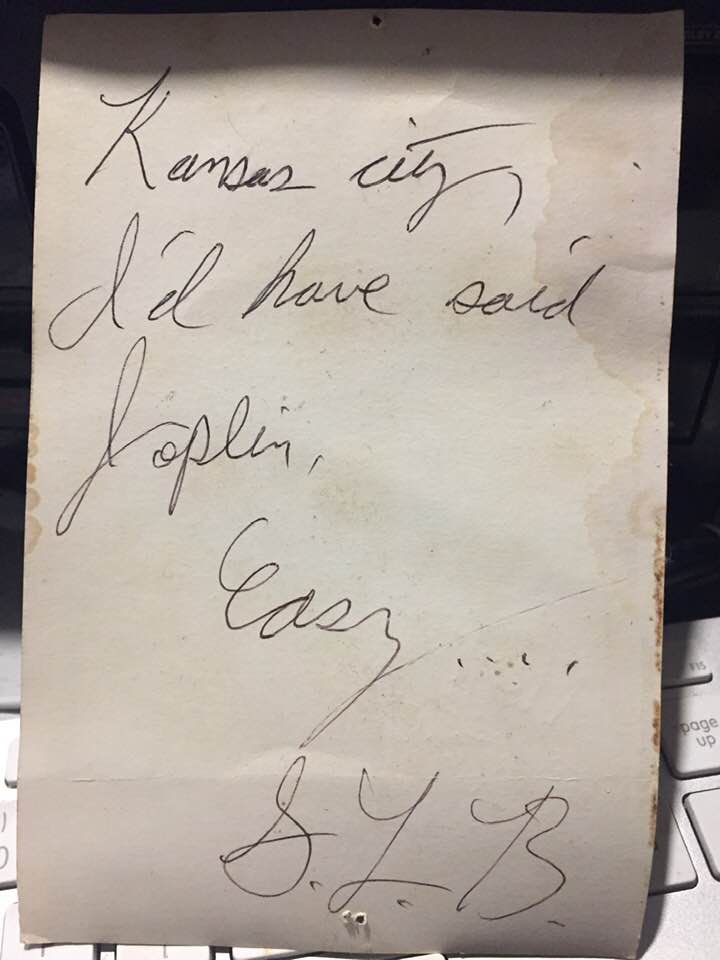 Kansas city,
I'd have said
Joplin,
Easy....
S.L.B.
F15
page
up